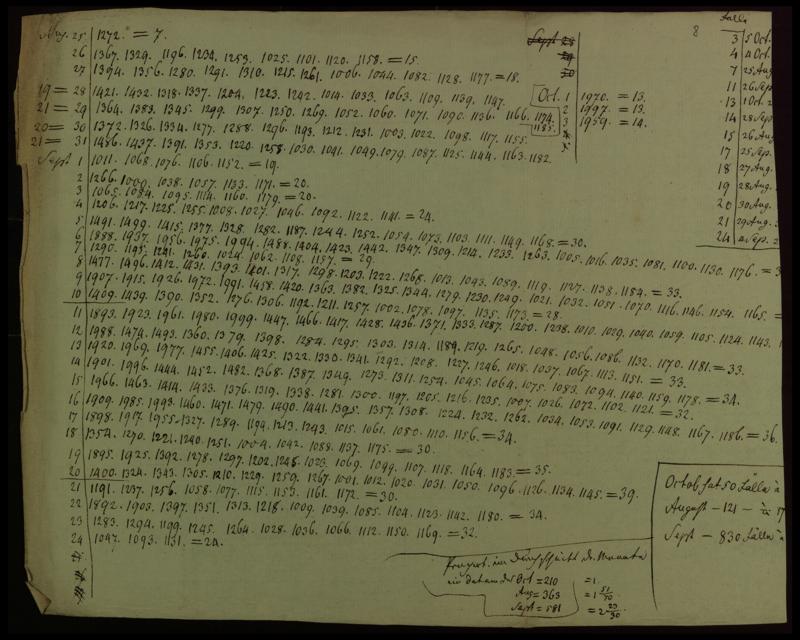 Aug. 25 | 1272. = 7.
26 | 1367. 1329. 1196. 1234. 1253. 1025. 1101. 1120. 1158. = 15.
27 | 1394. 1356. 1280. 1291. 1310. 1215. 1261. 1006. 1044. 1082. 1128. 1177. = 18.
19 = 28 | 1421. 1432. 1318. 1337. 1204. 1223. 1242. 1014. 1033. 1063. 1109. 1139. 1147.
21 = 29 | 1364. 1383. 1345. 1299. 1307. 1250. 1269. 1052. 1060. 1071. 1090. 1136. 1166. 1174. 1185.
20 = 30 | 1372. 1326. 1334. 1277. 1288. 1296. 1193. 1212. 1231. 1003. 1022. 1098. 1117. 1155.
21 = 31 | 1486. 1437. 1391. 1353. 1220. 1258. 1030. 1041. 1049. 1079. 1087. 1125. 1144. 1163. 1182.
Sept 1 | 1011. 1068. 1076. 1106. 1152. = 19.
2 | 1266. 1000. 1038. 1057. 1133. 1171. = 20.
3 | 1065. 1084. 1095. 1114. 1160. 1179. = 20.
4 | 1206. 1217. 1225. 1255. 1008. 1027. 1046. 1092. 1122. 1141. = 24.
5 | 1491. 1499. 1415. 1377. 1328. 1282. 1187. 1244. 1252. 1054. 1073. 1103. 1111. 1149. 1168. = 30.
6 | 1888. 1937. 1956. 1975. 1994. 1488. 1404. 1423. 1442. 1347. 1309. 1214. 1233. 1263. 1005. 1016. 1035. 1081. 1100. 1130. 1176.
7 | 1290. 1195. 1241. 1260. 1024. 1062. 1108. 1157. = 29.
8 | 1477. 1496. 1412. 1431. 1393. 1401. 1317. 1298. 1203. 1222. 1268. 1013. 1043. 1089. 1119. 1127. 1138. 1184. = 33.
9 | 1907. 1915. 1926. 1972. 1991. 1458. 1420. 1363. 1382. 1325. 1344. 1279. 1230. 1249. 1021. 1032. 1051. 1070. 1116. 1146. 1154. 1165.
10 | 1409. 1439. 1390. 1352. 1276. 1306. 1192. 1211. 1257. 1002. 1078. 1097. 1135. 1173. = 28.
11 | 1893. 1923. 1961. 1980. 1999. 1447. 1466. 1417. 1428. 1436. 1371. 1333. 1287. 1200. 1238. 1010. 1029. 1040. 1059. 1105. 1124. 1143.
12 | 1988. 1474. 1493. 1360. 1379. 1398. 1284. 1295. 1303. 1314. 1189. 1219. 1265. 1048. 1056. 1086. 1132. 1170. 1181. = 33.
13 | 1920. 1969. 1977. 1455. 1406. 1425. 1322. 1330. 1341. 1292. 1208. 1227. 1246. 1018. 1037. 1067. 1113. 1151. = 33.
14 | 1901. 1996. 1444. 1452. 1482. 1368. 1387. 1349. 1273. 1311. 1254. 1045. 1064. 1075. 1083. 1094. 1140. 1159. 1178. = 34.
15 | 1966. 1463. 1414. 1433. 1376. 1319. 1338. 1281. 1300. 1197. 1205. 1216. 1235. 1007. 1026. 1072. 1102. 1121. = 32.
16 | 1909. 1985. 1993. 1460. 1471. 1479. 1490. 1441. 1395. 1357. 1308. 1224. 1232. 1262. 1034. 1053. 1091. 1129. 1148. 1167. 1186. = 36.
17 | 1898. 1917. 1955. 1327. 1289. 1194. 1213. 1243. 1015. 1061. 1080. 1110. 1156. = 34.
18 | 1354. 1270. 1221. 1240. 1251. 1004. 1042. 1088. 1137. 1175. = 30.
19 | 1895. 1925. 1392. 1278. 1297. 1202. 1248. 1023. 1069. 1099. 1107. 1118. 1164. 1183. = 35.
20 | 1400. 1324. 1343. 1305. 1210. 1229. 1259. 1267. 1001. 1012. 1020. 1031. 1050. 1096. 1126. 1134. 1145. = 39.
21 | 1191. 1237. 1256. 1058. 1077. 1115. 1153. 1161. 1172. = 30.
22 | 1892. 1903. 1397. 1351. 1313. 1218. 1009. 1039. 1085. 1104. 1123. 1142. 1180. = 34.
23 | 1283. 1294. 1199. 1245. 1264. 1028. 1036. 1066. 1112. 1150. 1169. = 32.
24 | 1047. 1093. 1131. = 24.
Oct. 1 | 1970. = 13.
2 | 1997. = 13.
3 | 1959. = 14.
8
Fälle
3 | 5 Oct.
4 | 4 Oct.
7 | 25 Aug
11 | 26 Sep
13 | 1 Oct. 2
14 | 28 Sep
15 | 26 Aug
17 | 25 Sep.
18 | 27 Aug.
19 | 28 Aug.
20 | 30 Aug.
21 | 29 Aug.
24 | 4 Sep.
Octob hat 50 Fälle
August - 121 -
Sept - 830 Fälle
im Durchschnitt
Oct = 210 = 1.
Aug = 363 = 1 51/70
Sept = 581 = 2 23/30